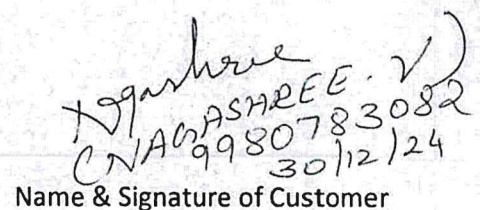 Nagashree
(NAGASHREE. V)
9980783082
30/12/24
Name & Signature of Customer